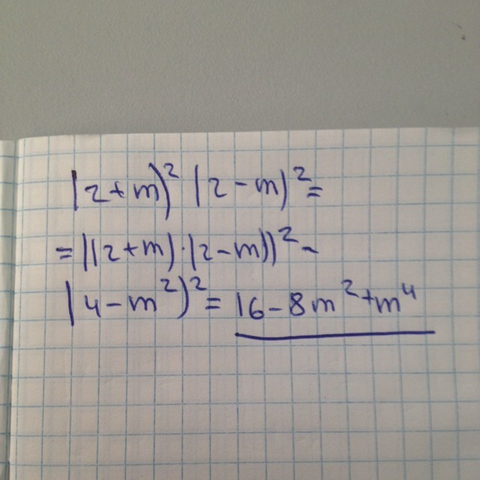 (2+m)² (2-m)² =
= ((2+m)·(2-m))² -
(4-m²)² = 16-8m²+m⁴